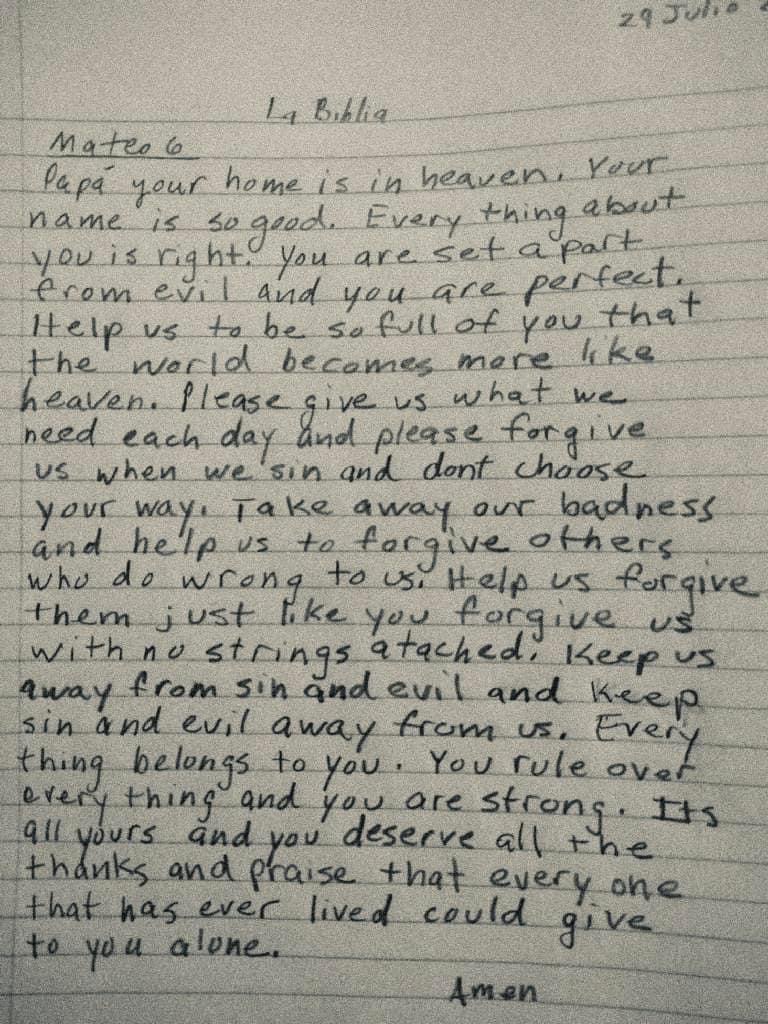 29 Julio
La Biblia
Mateo 6
Papá your home is in heaven. Your
name is so good. Every thing about
you is right. You are set a part
from evil and you are perfect.
Help us to be so full of you that
the world becomes more like
heaven. Please give us what we
need each day and please forgive
us when we sin and dont choose
your way. Take away our badness
and help us to forgive others
who do wrong to us. Help us forgive
them just like you forgive us
with no strings atached. Keep us
away from sin and evil and keep
sin and evil away from us. Every
thing belongs to you. You rule over
every thing and you are strong. Its
all yours and you deserve all the
thanks and praise that every one
that has ever lived could give
to you alone.
Amen